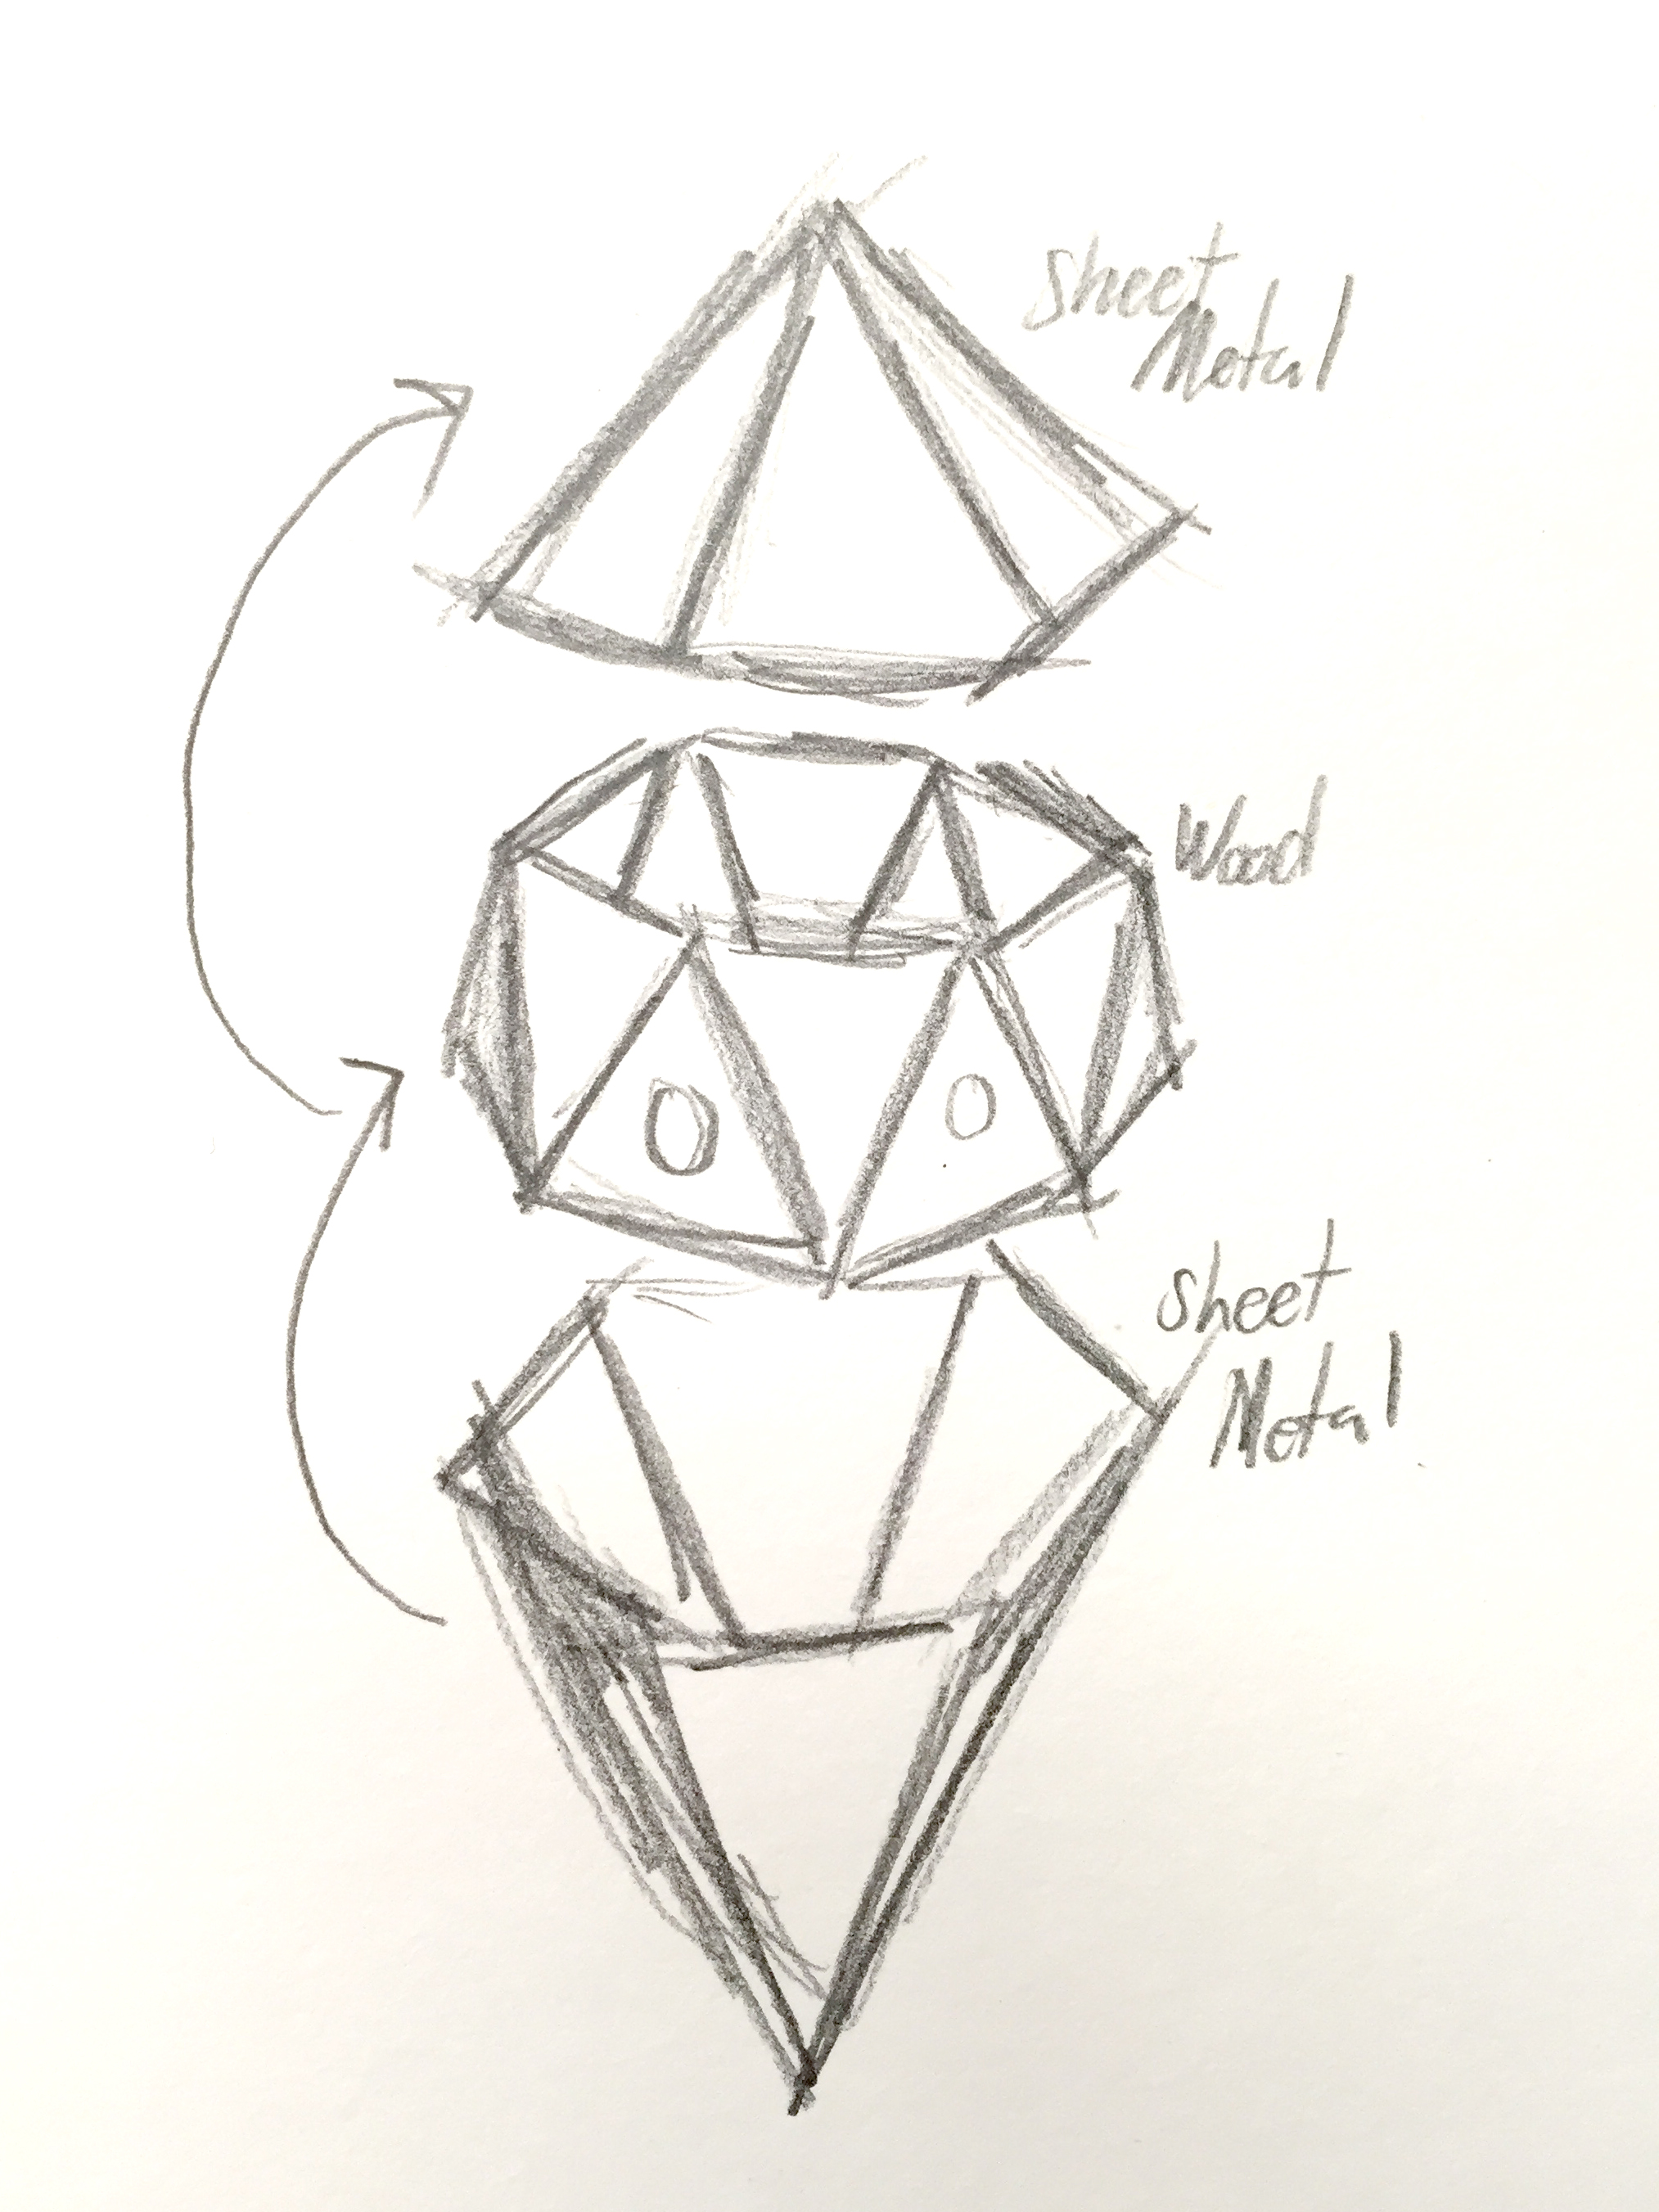 Sheet
Metal
Wood
0 0
Sheet
Metal